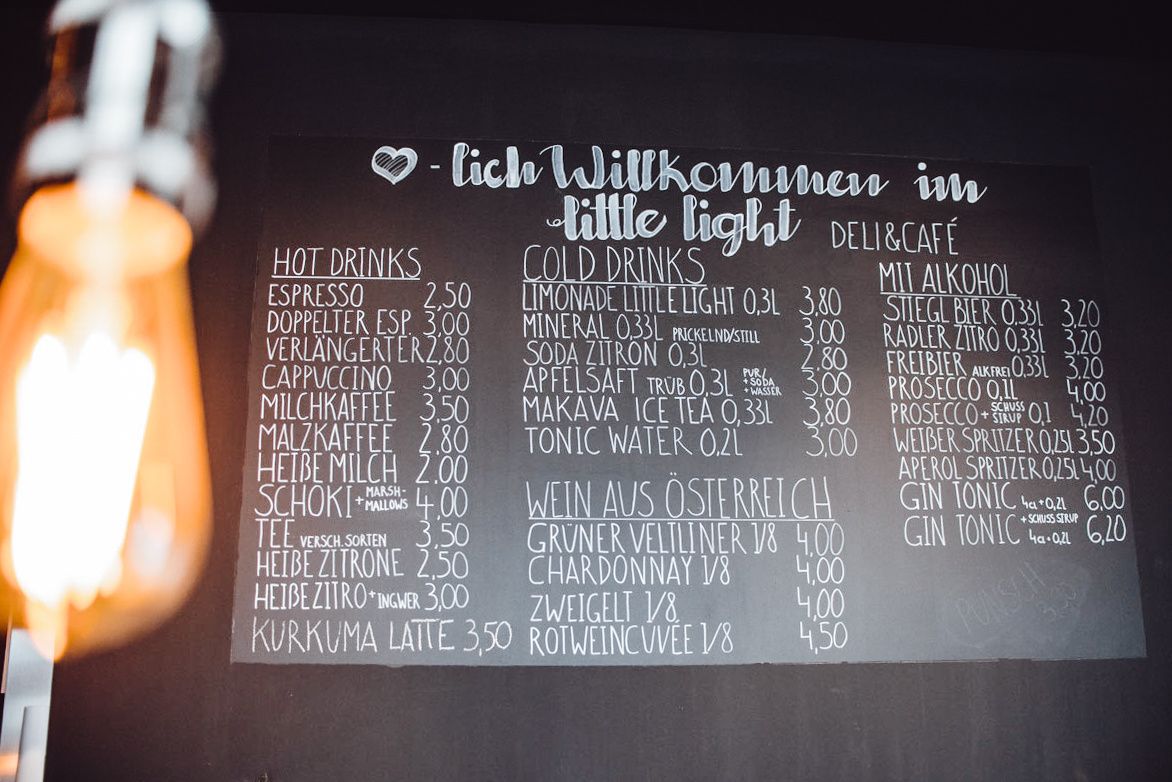 ♥-lich Willkommen im
little light DELI&CAFÉ
HOT DRINKS
ESPRESSO 2,50
DOPPELTER ESP. 3,00
VERLÄNGERTER 2,80
CAPPUCCINO 3,00
MILCHKAFFEE 3,50
MALZKAFFEE 2,80
HEIßE MILCH 2,00
SCHOKI + MARSH-MALLOWS 4,00
TEE VERSCH. SORTEN 3,50
HEIßE ZITRONE 2,50
HEIßE ZITRO + INGWER 3,00
KURKUMA LATTE 3,50
COLD DRINKS
LIMONADE LITTLE LIGHT 0,3L 3,80
MINERAL 0,33L PRICKELND/STILL 3,00
SODA ZITRON 0,3L 2,80
APFELSAFT TRÜB 0,3L PUR/ + SODA + WASSER 3,00
MAKAVA ICE TEA 0,33L 3,80
TONIC WATER 0,2L 3,00
WEIN AUS ÖSTERREICH
GRÜNER VELTLINER 1/8 4,00
CHARDONNAY 1/8 4,00
ZWEIGELT 1/8 4,00
ROTWEINCUVÉE 1/8 4,50
MIT ALKOHOL
STIEGL BIER 0,33L 3,20
RADLER ZITRO 0,33L 3,20
FREIBIER ALKFREI 0,33L 3,20
PROSECCO 0,1L 4,00
PROSECCO + SCHUSS SIRUP 0,1 4,20
WEIßER SPRITZER 0,25L 3,50
APEROL SPRITZER 0,25L 4,00
GIN TONIC 4cl + 0,2L 6,00
GIN TONIC + SCHUSS SIRUP 4cl + 0,2L 6,20
PUNSCH